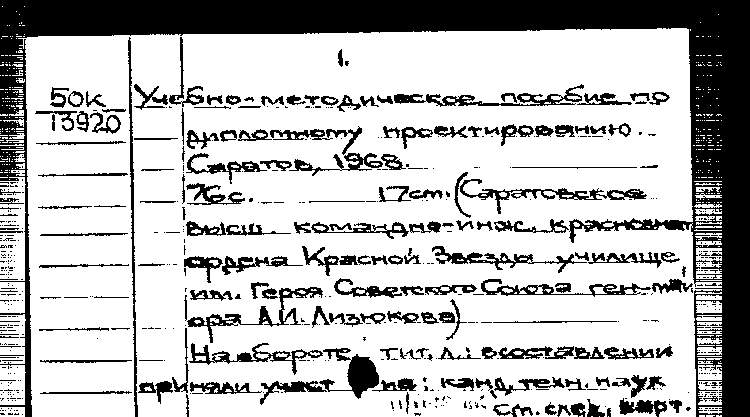 1.
50К
13920
Учебно-методическое пособие по
дипломному проектированию.
Саратов, 1968.
76с. 17см. (Саратовское
высш. командно-инж. краснознам
ордена Красной Звезды училище
им. Героя Советского Союза ген-май
ора А.И. Лизюкова)
На обороте тит. л.: в составлении
приняли участ ие: канд. техн. наук
см. след. карт.